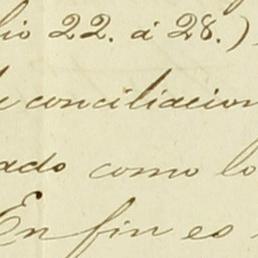 lio 22. á 28.)
conciliacion
ado como lo
En fin es